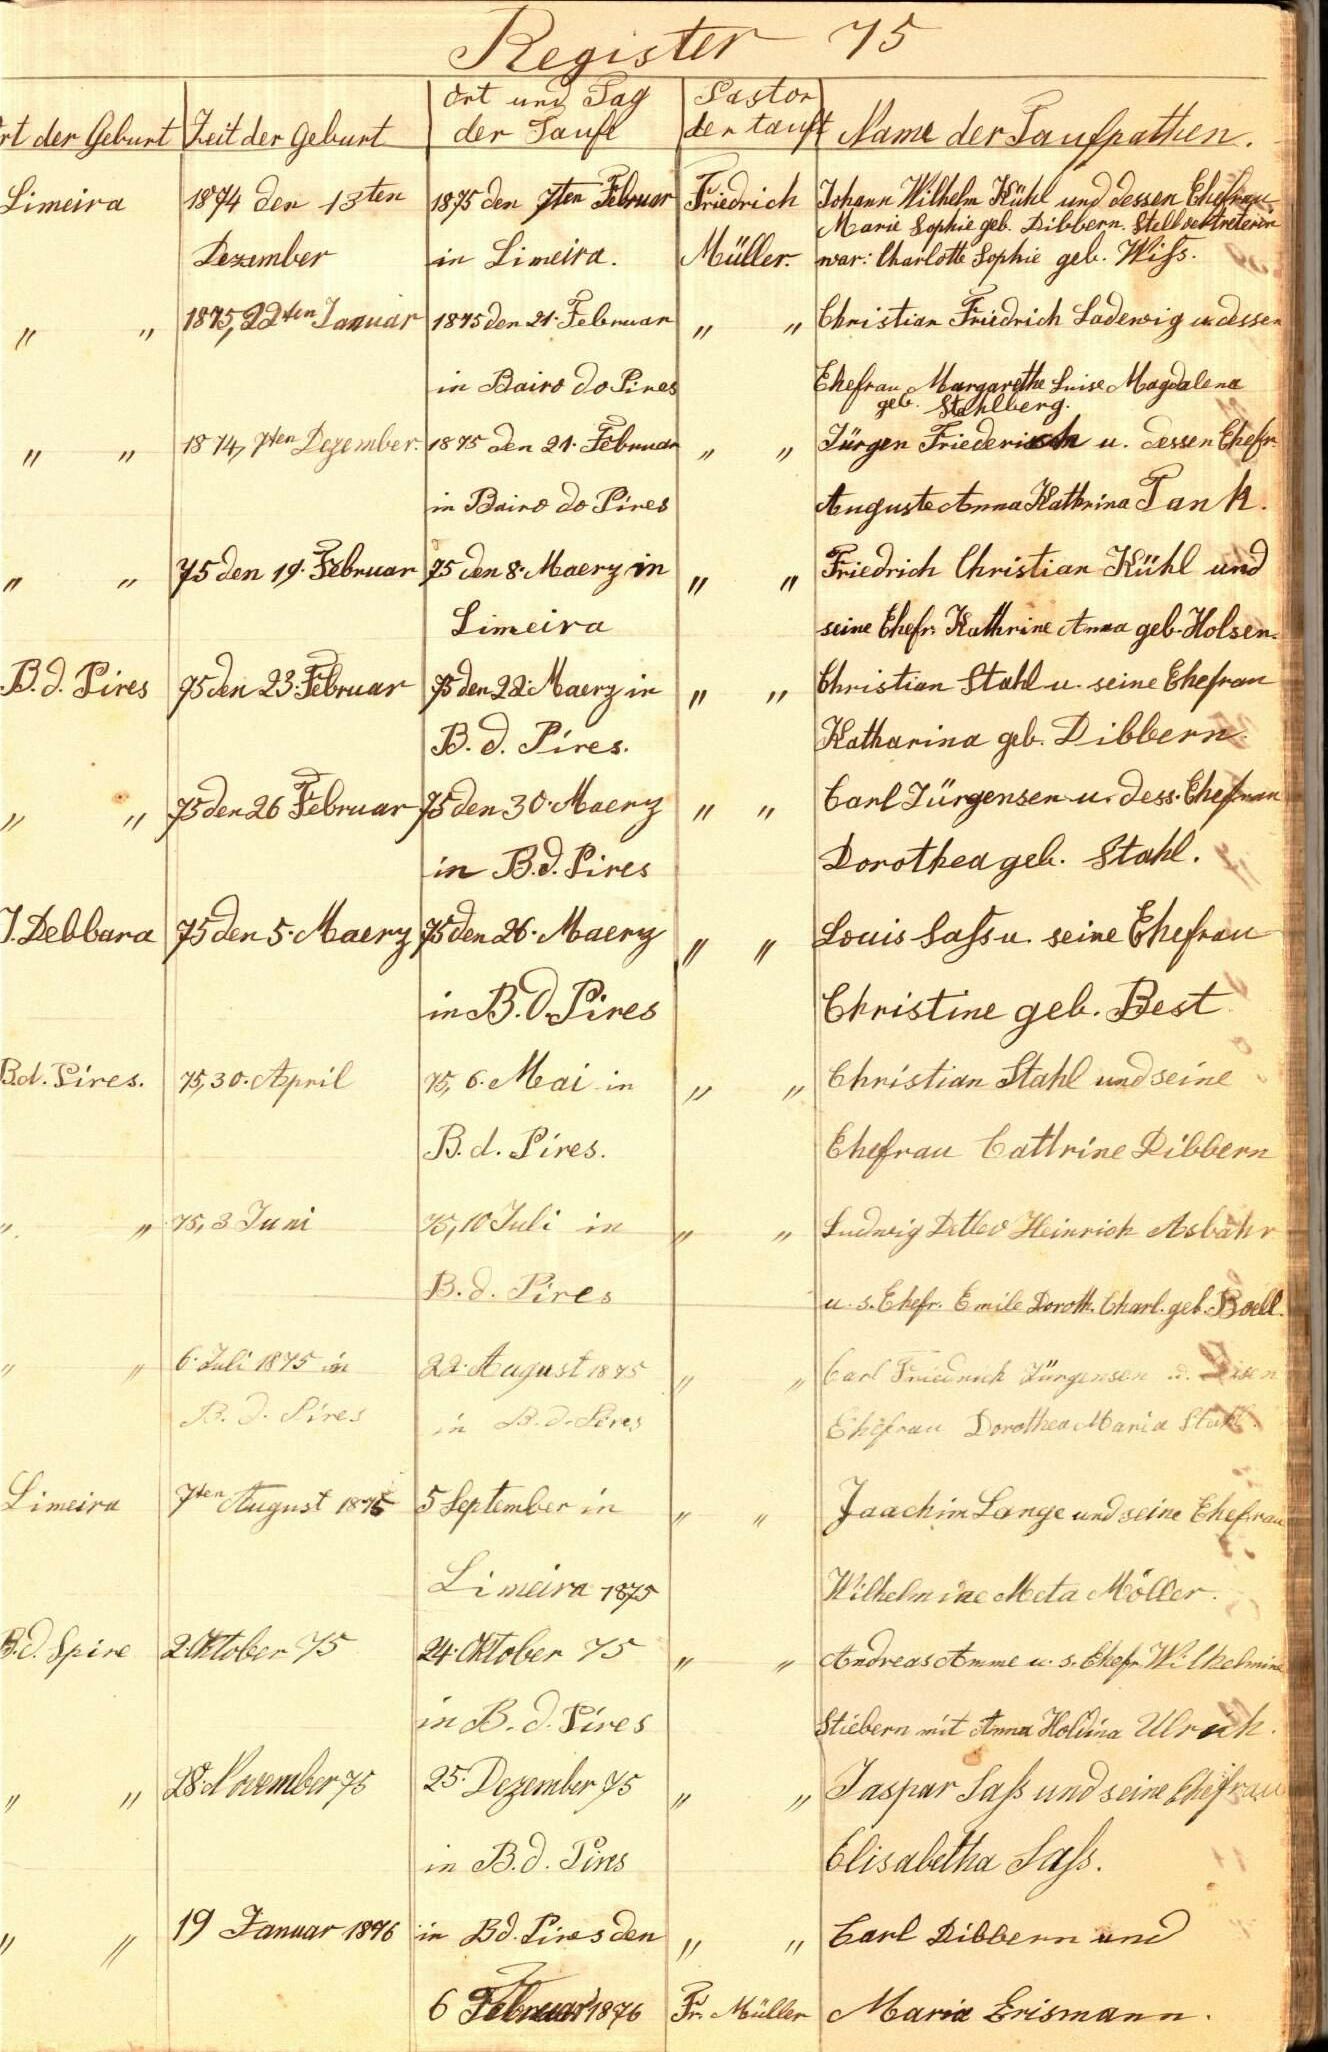 Register 75
Ort der Geburt Zeit der Geburt Ort und Tag der Taufe Pastor der tauft Name der Taufpathen.
Limeira 1874 den 13ten 1875 den 7ten Februar Friedrich Johann Wilhelm Kühl und dessen Ehefrau
Marie Sophie geb. Dibbern. Stellvertreterin
Dezember in Limeira. Müller. war: Charlotte Sophie geb. Wiß.
" " 1875, 22ten Januar 1875 den 21. Februar " " Christian Friedrich Ladewig u. dessen
in Bairo do Pires Ehefrau Margarethe Luise Magdalena
geb. Stahlberg.
" " 1874, 7ten Dezember. 1875 den 21. Februar " " Jürgen Friederich u. dessen Ehefr.
in Bairo do Pires Auguste Anna Kathrina Tank.
" " 75 den 19. Februar 75 den 8. Maerz in " " Friedrich Christian Kühl und
Limeira seine Ehefr. Kathrine Anna geb. Holsen.
B. d. Pires 75 den 23. Februar 75 den 22. Maerz in " " Christian Stahl u. seine Ehefrau
B. d. Pires. Katharina geb. Dibbern.
" " 75 den 26 Februar 75 den 30. Maerz " " Carl Jürgensen u. dess. Ehefrau
in B. d. Pires Dorothea geb. Stahl.
Debbara 75 den 5. Maerz 75 den 26. Maerz " " Louis Saß u. seine Ehefrau
in B. d. Pires Christine geb. Best
B.d. Pires. 75, 30. April 75, 6. Mai in " " Christian Stahl und seine
B. d. Pires. Ehefrau Cathrine Dibbern
" " 75, 3 Juni 75, 10 Juli in " " Ludwig Detlev Heinrich Asbahr
B. d. Pires u. s. Ehefr. Emile Doroth. Charl. geb. Boell.
" " 6. Juli 1875 in 22. August 1875 " " Carl Friedrich Jürgensen
B. d. Pires in B. d. Pires Ehefrau Dorothea Maria Stahl.
Limeira 7ten August 1875 5 September in " " Joachim Lange und seine Ehefrau
Limeira 1875 Wilhelmine Meta Möller.
B. d. Spire 2. Oktober 75 24. Oktober 75 " " Andreas Amme u. s. Ehefr. Wilhelmine
in B. d. Pires Stiebern mit Anna Holdina Ulrich.
" " 28. November 75 25. Dezember 75 " " Jaspar Saß und seine Ehefrau
in B. d. Pires Elisabetha Saß.
" " 19 Januar 1876 in B d. Pires den " " Carl Dibbern und
6 Februar 1876 Fr. Müller Maria Erismann.